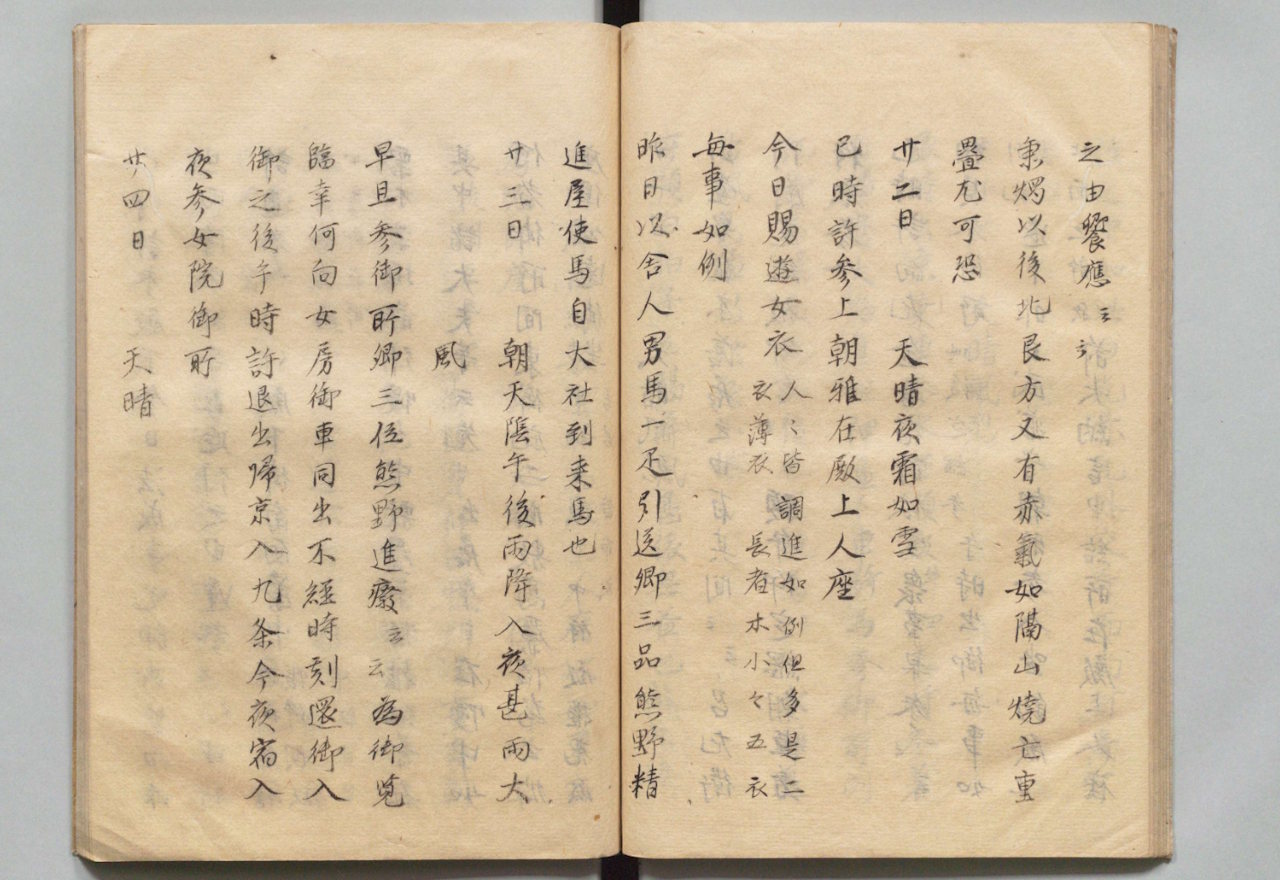 之由饗應云云
秉燭以後北艮方又有赤氣如隔山燒亡重
疊尤可恐
廿二日　天晴夜霜如雪
巳時許参上朝雅在殿上人座
今日賜遊女衣
人〻皆調進如例但多是二
衣薄衣　長者木小々五衣
毎事如例
昨日以舎人男馬一疋引送卿三品熊野精
進屋使馬自大社到来馬也
廿三日　朝天陰午後雨降入夜甚雨大
風
早旦参御所卿三位熊野進発云云為御覧
臨幸何向女房御車同出不經時刻還御入
御之後午時許退出帰京入九条今夜宿入
夜参女院御所
廿四日　天晴